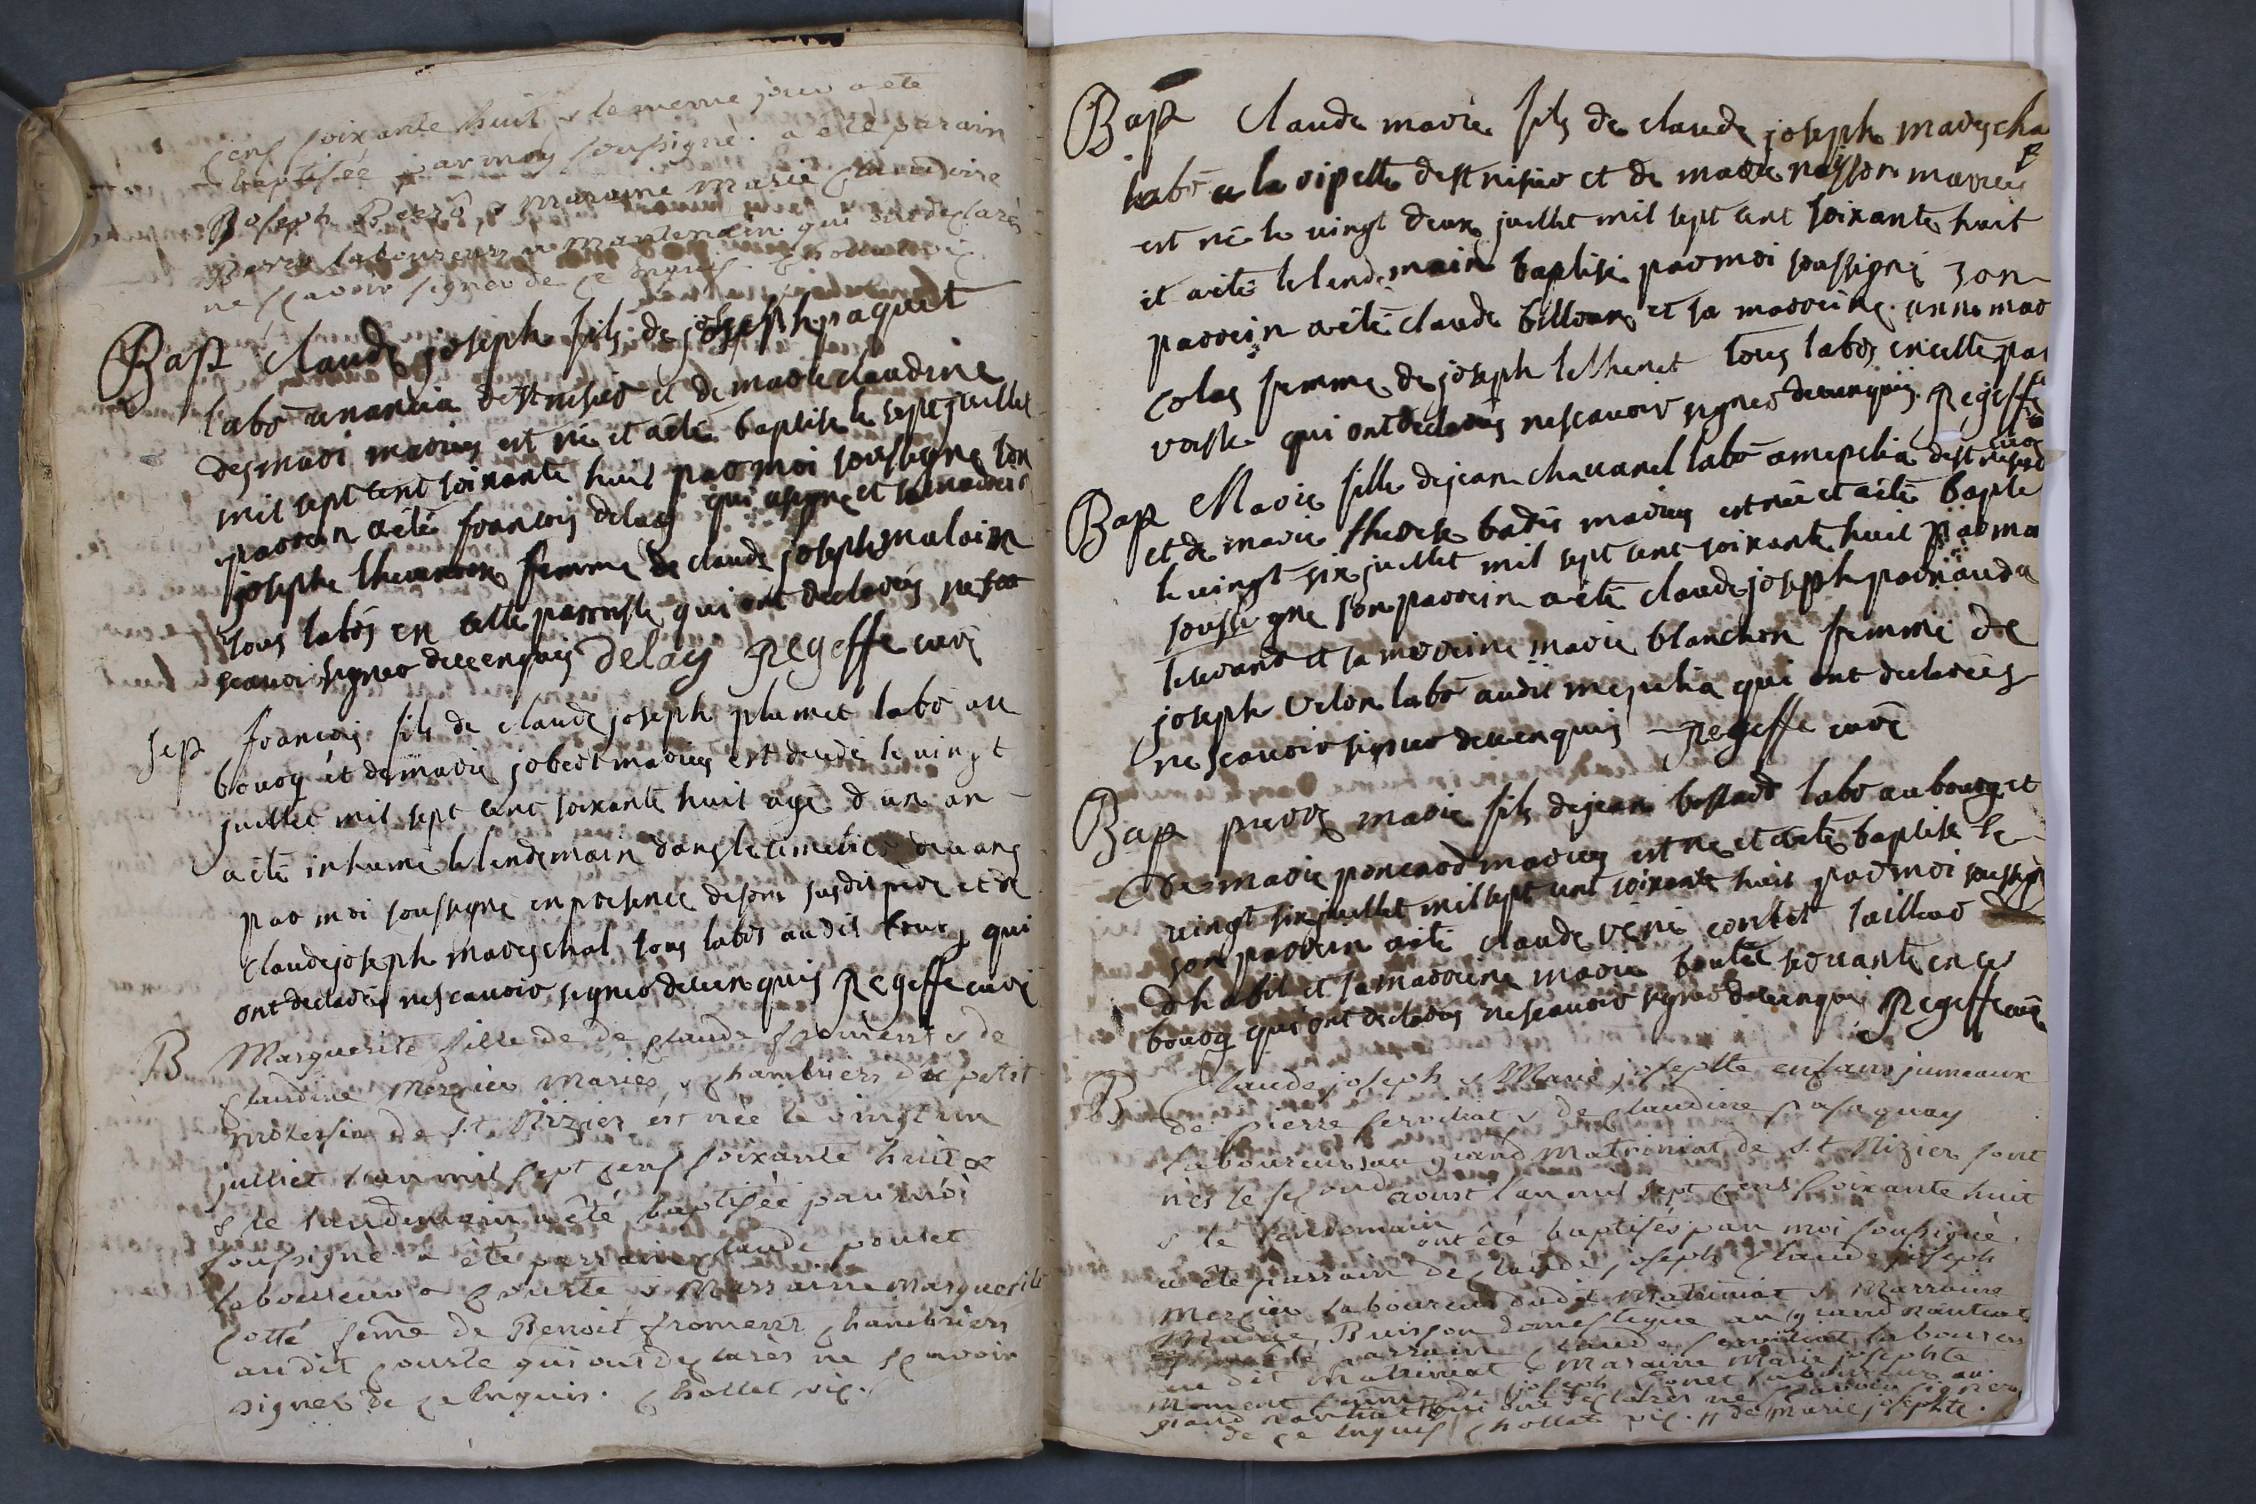 cens soixante huit & le meme jour a eté
baptisée par moy soussigné. a eté parain
Joseph & maraine Marie Claudine
laboureurs a Mantenan qui ont declarés
ne sçavoir signer de ce enquis. Chollet vic.
Bap Claude joseph fils de joseph paquet
labō a nancia de st nisier et de marie claudine
desmari mariés est né et a été baptisé le sept juillet
mil sept cent soixante huit par moi soussigné son
parrein a été françois delay qui a signé et sa marreine
josephe femme de claude joseph malain
tous labōs en cette parroisse qui ont declarés ne
scavoir signer de ce enquis delay Regeffe curé
Sep françois fils de claude joseph plumet labō au
bourg et de marie jobert mariés est decedé le vingt
juillet mil sept cent soixante huit agé d'un an
a été inhumé le lendemain dans le cimetiere ceans
par moi soussigné en presence de son susdit pere et de
claude joseph mareschal tous labōs audit bourg qui
ont declarés ne scavoir signer de ce enquis Regeffe curé
B Marguerite fille de de Claude froment & de
Claudine Mercier Mariés & chambriers du petit
molersia de S.t Nizier est née le vingt un
julliet l'an mil sept cens soixante huit &
& le landemain a été baptisée par moi
soussigné a été parrain Claude poulet
laboureur a Courte & Marraine Marguerite
Cotté femē de Benoit froment Chambriers
audit Courte qui ont declarés ne sçavoir
signer de ce enquis. Chollet vic.
Bap Claude marie fils de claude joseph mares cha
labō a la vipette de st nisier et de marie mariés
est né le vingt deux juillet mil sept cent soixante huit
et a été le lendemain baptisé par moi soussigné son
parrein a été claude billoux et sa marreine anne mar
colas femme de joseph tous labōs en cette par
roisse qui ont declarés ne scavoir signer de ce enquis. Regeffe
curé
Bap Marie fille de jean chavanel labō a mepelia de st nisier
et de marie therese badis mariés est née et a été baptisé
le vingt six juillet mil sept cent soixante huit par moi
soussigné son parrein a été claude joseph
et sa marreine marie blanchon femme de
joseph velon labō audit mepelia qui ont declarées
ne scavoir signer de ce enquis Regeffe curé
Bap pierre marie fils de jean bossard labō au bourg et
de marie poncard mariés est né et a été baptisé le
vingt six juillet mil sept cent soixante huit par moi soussigné
son parrein a été claude réné contet tailleur
d'habit et sa marreine marie boutée servante en ce
bourg qui ont declarés ne scavoir signer de ce enquis Regeffe curé
B Claude joseph & Marie josephte enfans jumeaux
de pierre servihat & de Claudine pasaquay
laboureurs au grand Matriniat de S.t Nizier sont
nés le second aoust l'an mil sept cens soixante huit
& le lendemain ont été baptisés par moi soussigné.
a été parrain de Claude joseph Claude joseph
Mercier laboureur dudit Matriniat & Marraine
Marie Buisson domestique au grand nantiat
& a eté parrain Claude servihat laboureur
au dit Matriniat & Maraine Marie josephte
Moment femme de joseph laboureur au
grand nantiat qui ont declarés ne sçavoir signer
de ce enquis Chollet vic. // de Marie josephte.